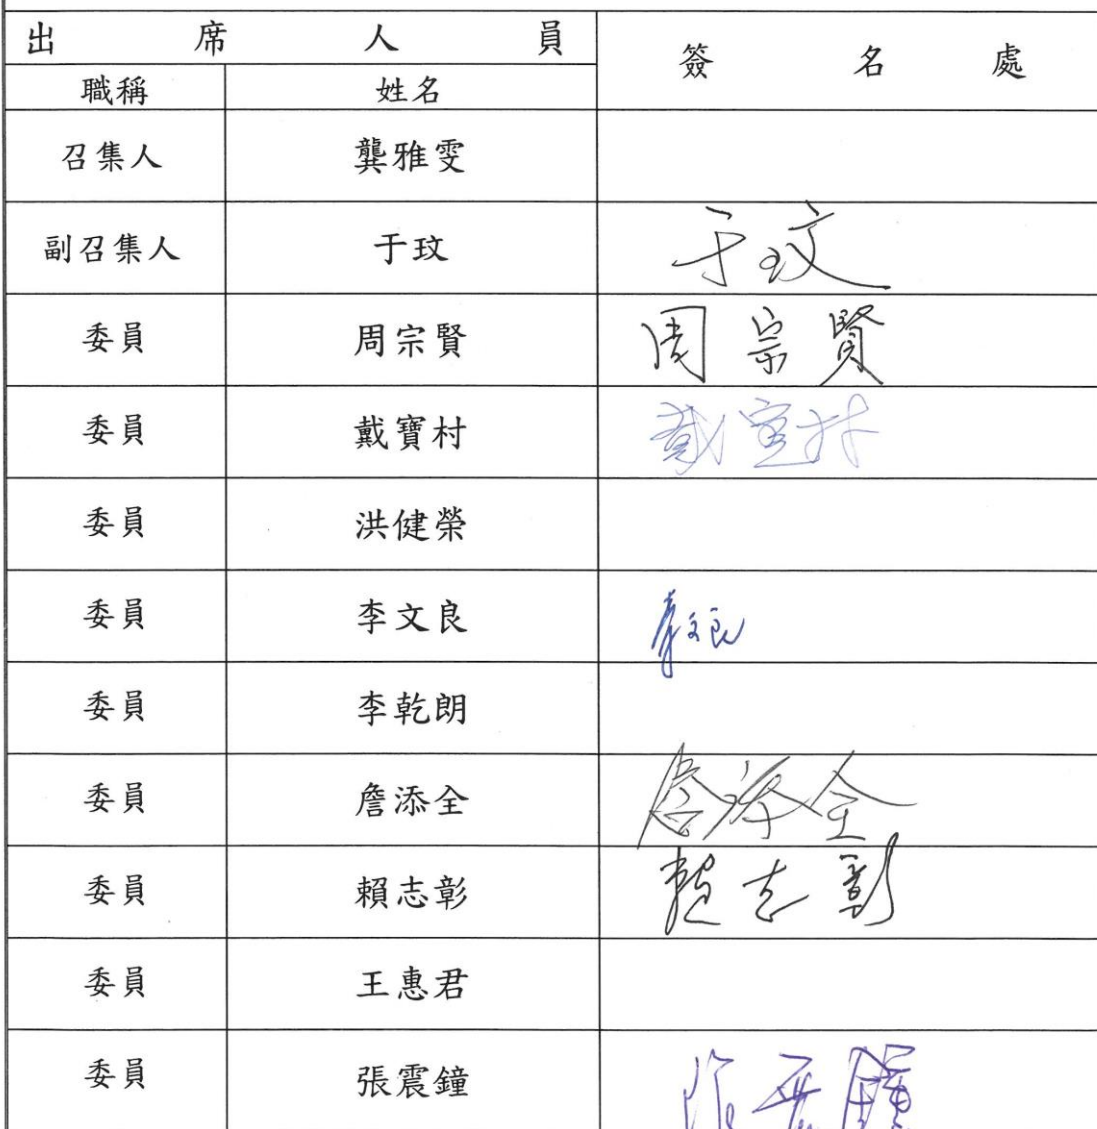 出席人員 簽名處
職稱 姓名
召集人 龔雅雯
副召集人 于玟 于玟
委員 周宗賢 周宗賢
委員 戴寶村 戴寶村
委員 洪健榮
委員 李文良 李文良
委員 李乾朗
委員 詹添全 詹添全
委員 賴志彰 賴志彰
委員 王惠君
委員 張震鐘 張震鐘